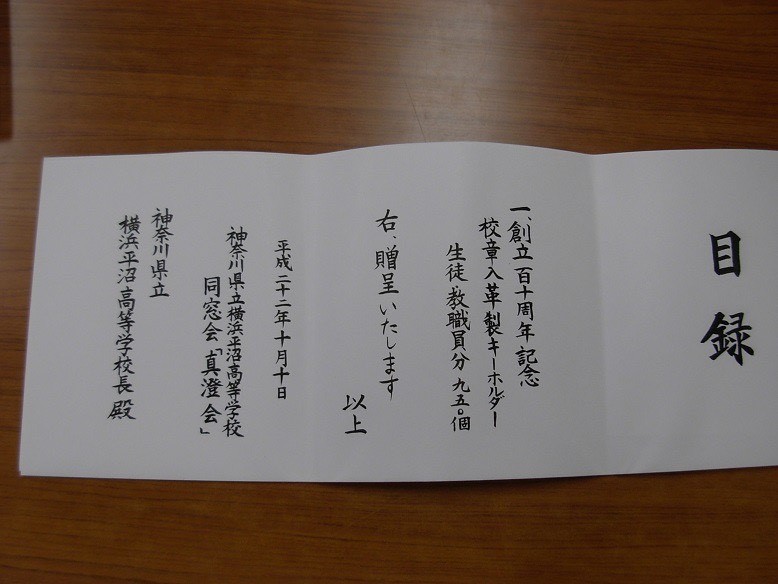 目録
一、創立百十周年記念
校章入革製キーホルダー
生徒・教職員分 九五〇個
右、贈呈いたします
以上
平成二十二年十月十日
神奈川県立横浜平沼高等学校
同窓会「真澄会」
神奈川県立
横浜平沼高等学校長 殿